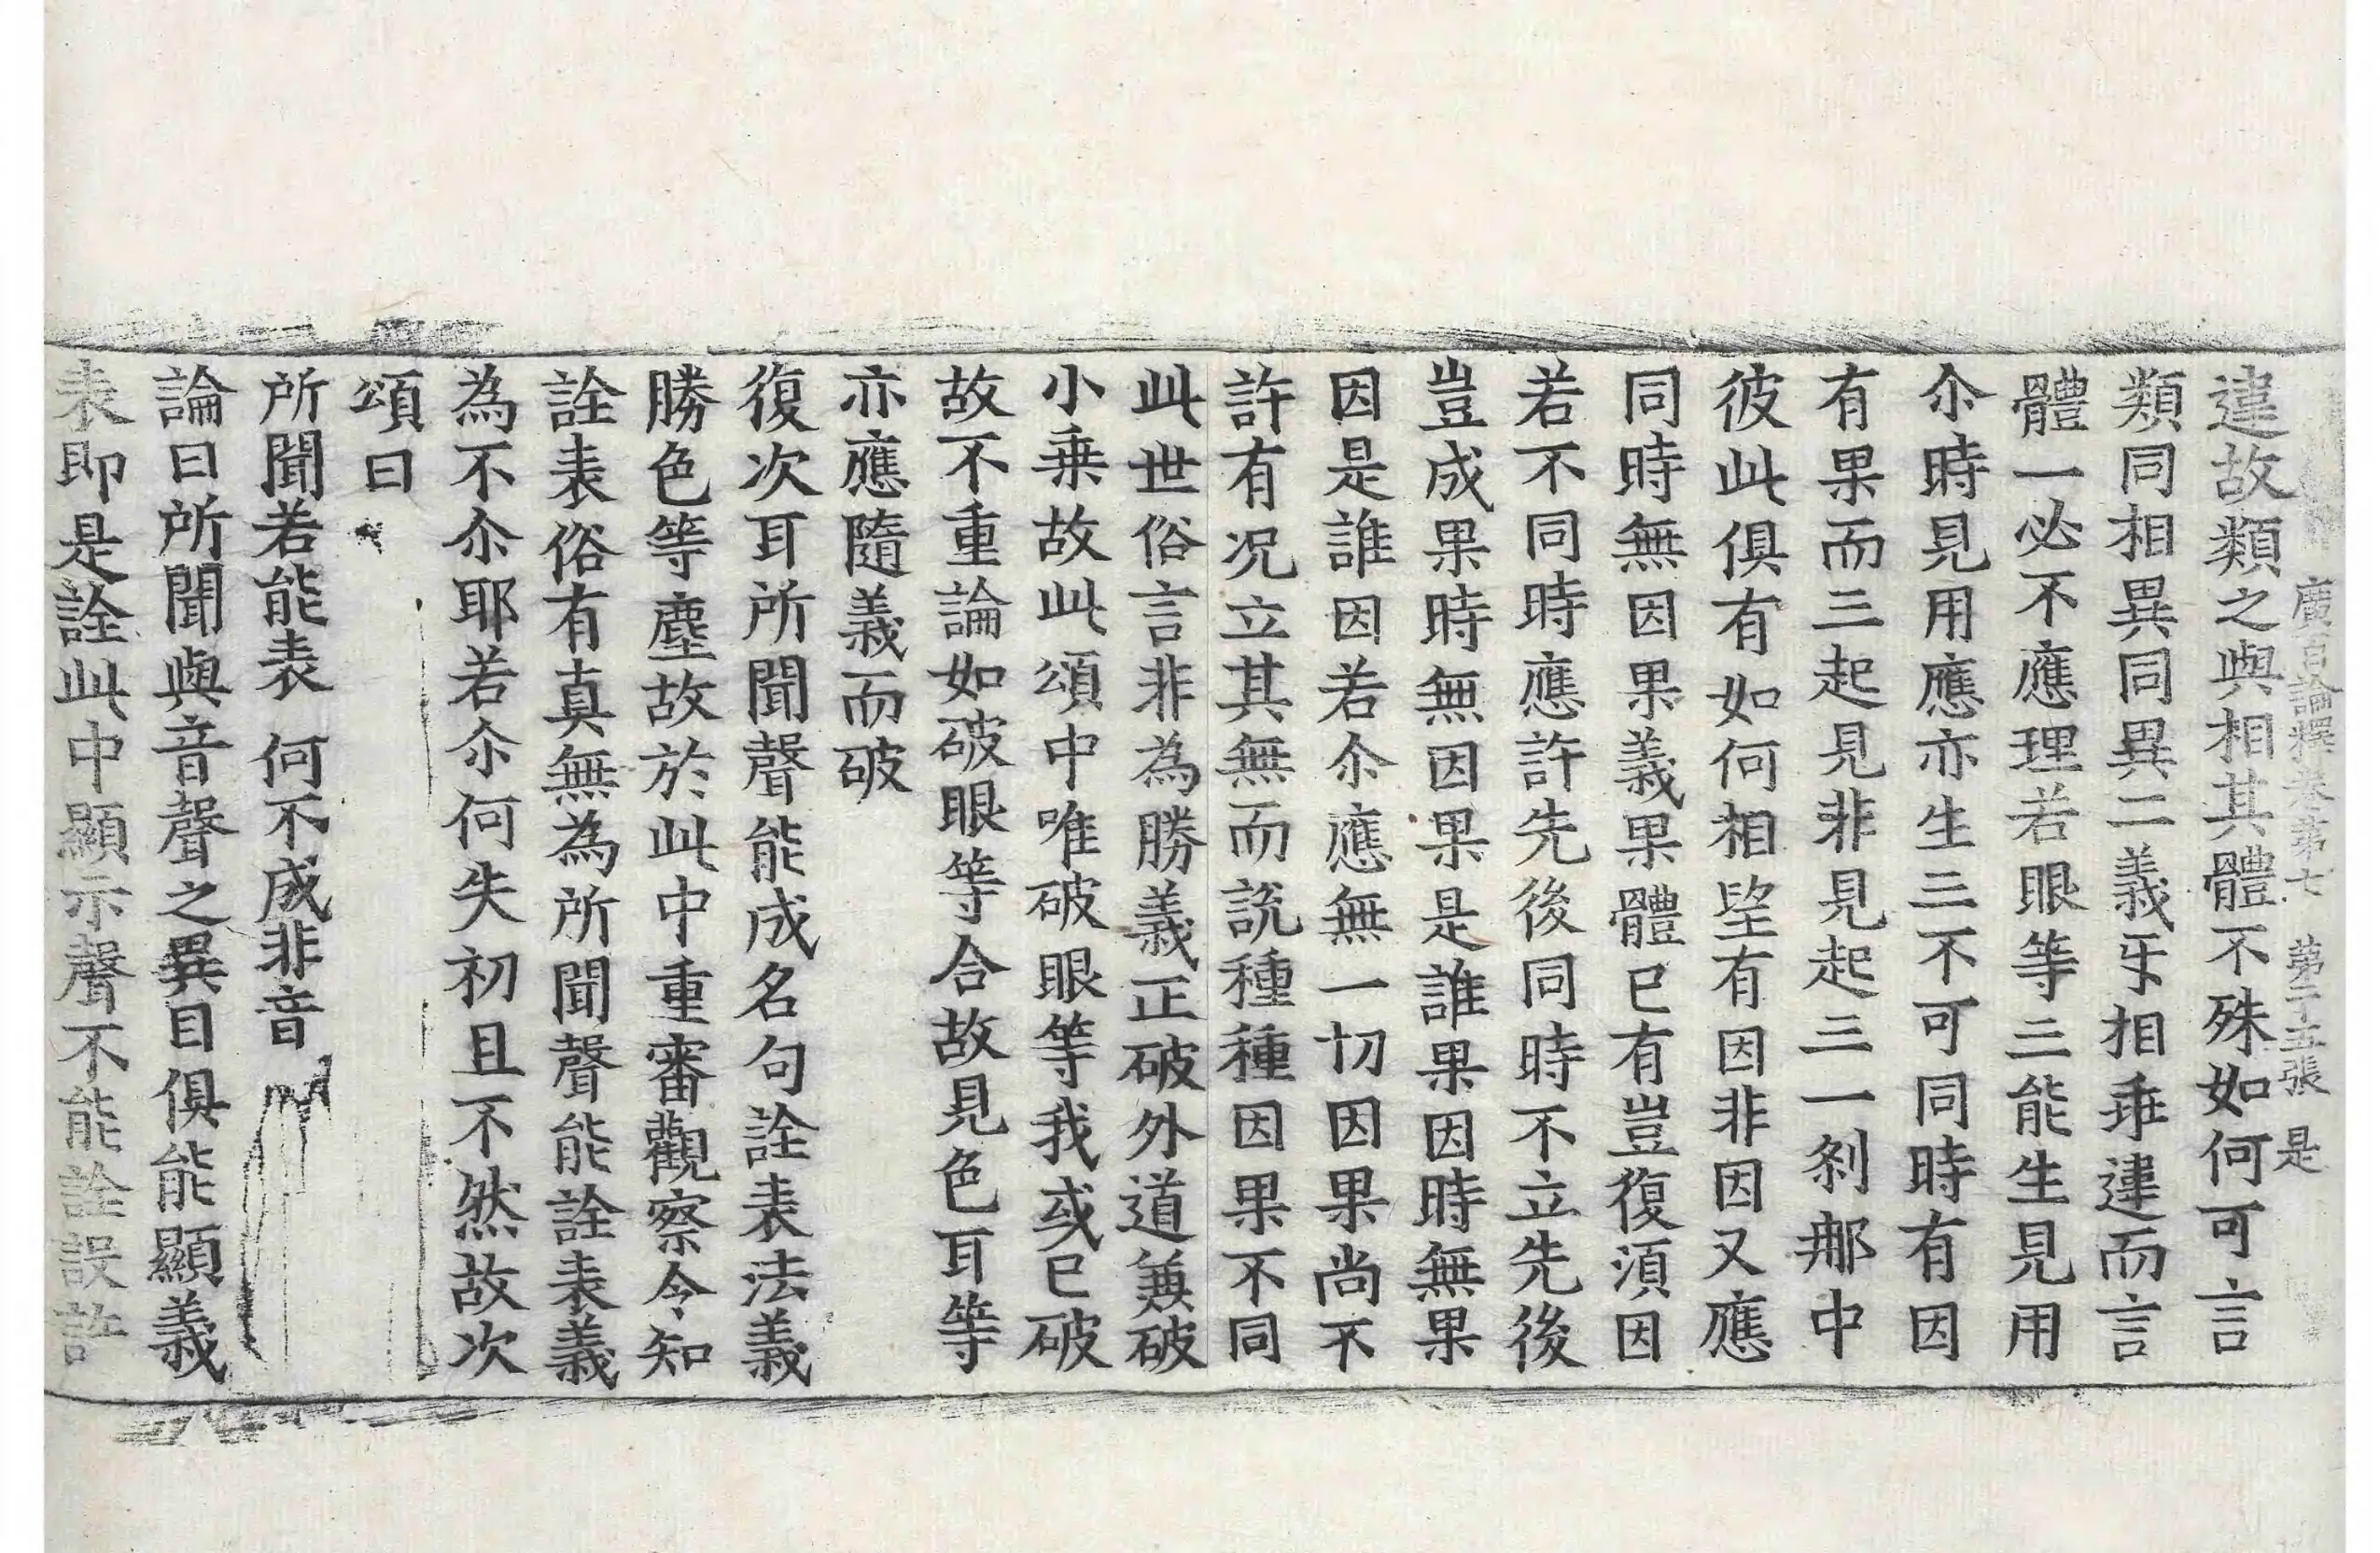 廣百論釋卷第七　第二十五張　是
違故類之與相其體不殊如何可言
類同相異同異二義牙相乖違而言
體一必不應理若眼等三能生見用
尒時見用應亦生三不可同時有因
有果而三起見非見起三一剎那中
彼此俱有如何相望有因非因又應
同時無因果義果體已有豈復須因
若不同時應許先後同時不立先後
豈成果時無因果是誰果因時無果
因是誰因若尒應無一切因果尚不
許有况立其無而說種種因果不同
此世俗言非為勝義正破外道兼破
小乗故此頌中唯破眼等我或已破
故不重論如破眼等合故見色耳等
亦應隨義而破
復次耳所聞聲能成名句詮表法義
勝色等塵故於此中重審觀察今知
詮表俗有真無為所聞聲能詮表義
為不尒耶若尒何失初且不然故次
頌曰
所聞若能表　何不成非音
論曰所聞與音聲之異目俱能顯義
表即是詮此中顯示聲不能詮設許